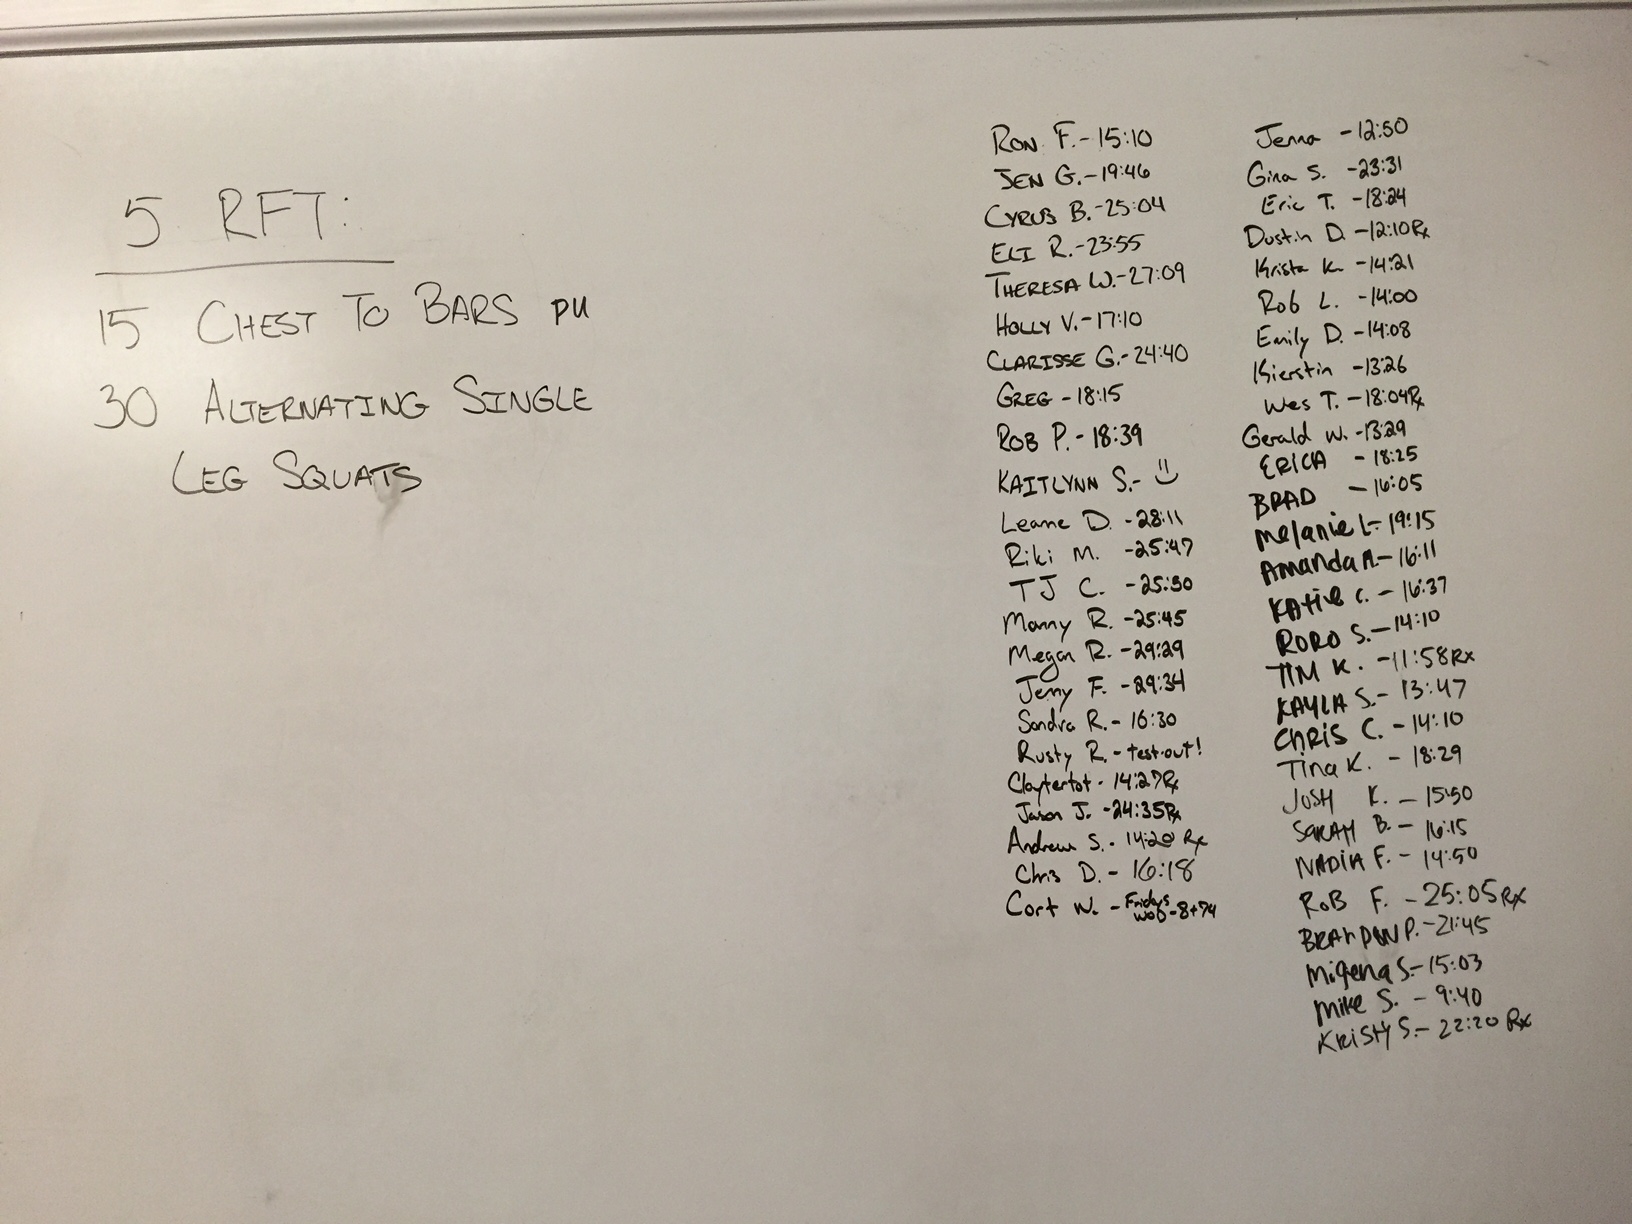 5 RFT:
15 CHEST TO BARS PU
30 ALTERNATING SINGLE
LEG SQUATS
RON F. - 15:10
JEN G. - 19:46
CYRUS B. - 25:04
ELI R. - 23:55
THERESA W. - 27:09
HOLLY V. - 17:10
CLARISSE G. - 24:40
GREG - 18:15
ROB P. - 18:39
KAITLYNN S. -
Leane D. - 28:11
Riki M. - 25:47
TJ C. - 25:30
Manny R. - 25:45
Megan R. - 29:29
Jerry F. - 29:34
Sandra R. - 16:30
Rusty R. - test-out!
Claytertot - 14:27 Rx
Jason J. - 24:35 Rx
Andrew S. - 14:20 Rx
Chris D. - 16:18
Cort W. - Fridys
WOD - 8+74
Jenna - 12:50
Gina S. - 23:31
Eric T. - 18:24
Dustin D. - 12:10 Rx
Krista K. - 14:21
Rob L. - 14:00
Emily D. - 14:08
Kierstin - 13:26
Wes T. - 18:04 Rx
Gerald W. - 13:29
ERICA - 18:25
BRAD - 16:05
Melanie L - 19:15
Amanda - 16:11
KATIE C. - 16:37
RORO S. - 14:10
TIM K. - 11:58 Rx
KAYLA S. - 13:47
CHRIS C. - 14:10
Tina K. - 18:29
JOSH K. - 15:50
SARAH B. - 16:15
NADIA F. - 14:50
ROB F. - 25:05 Rx
BRANDON P. - 21:45
Migena S - 15:03
Mike S. - 9:40
KRISTY S. - 22:20 Rx